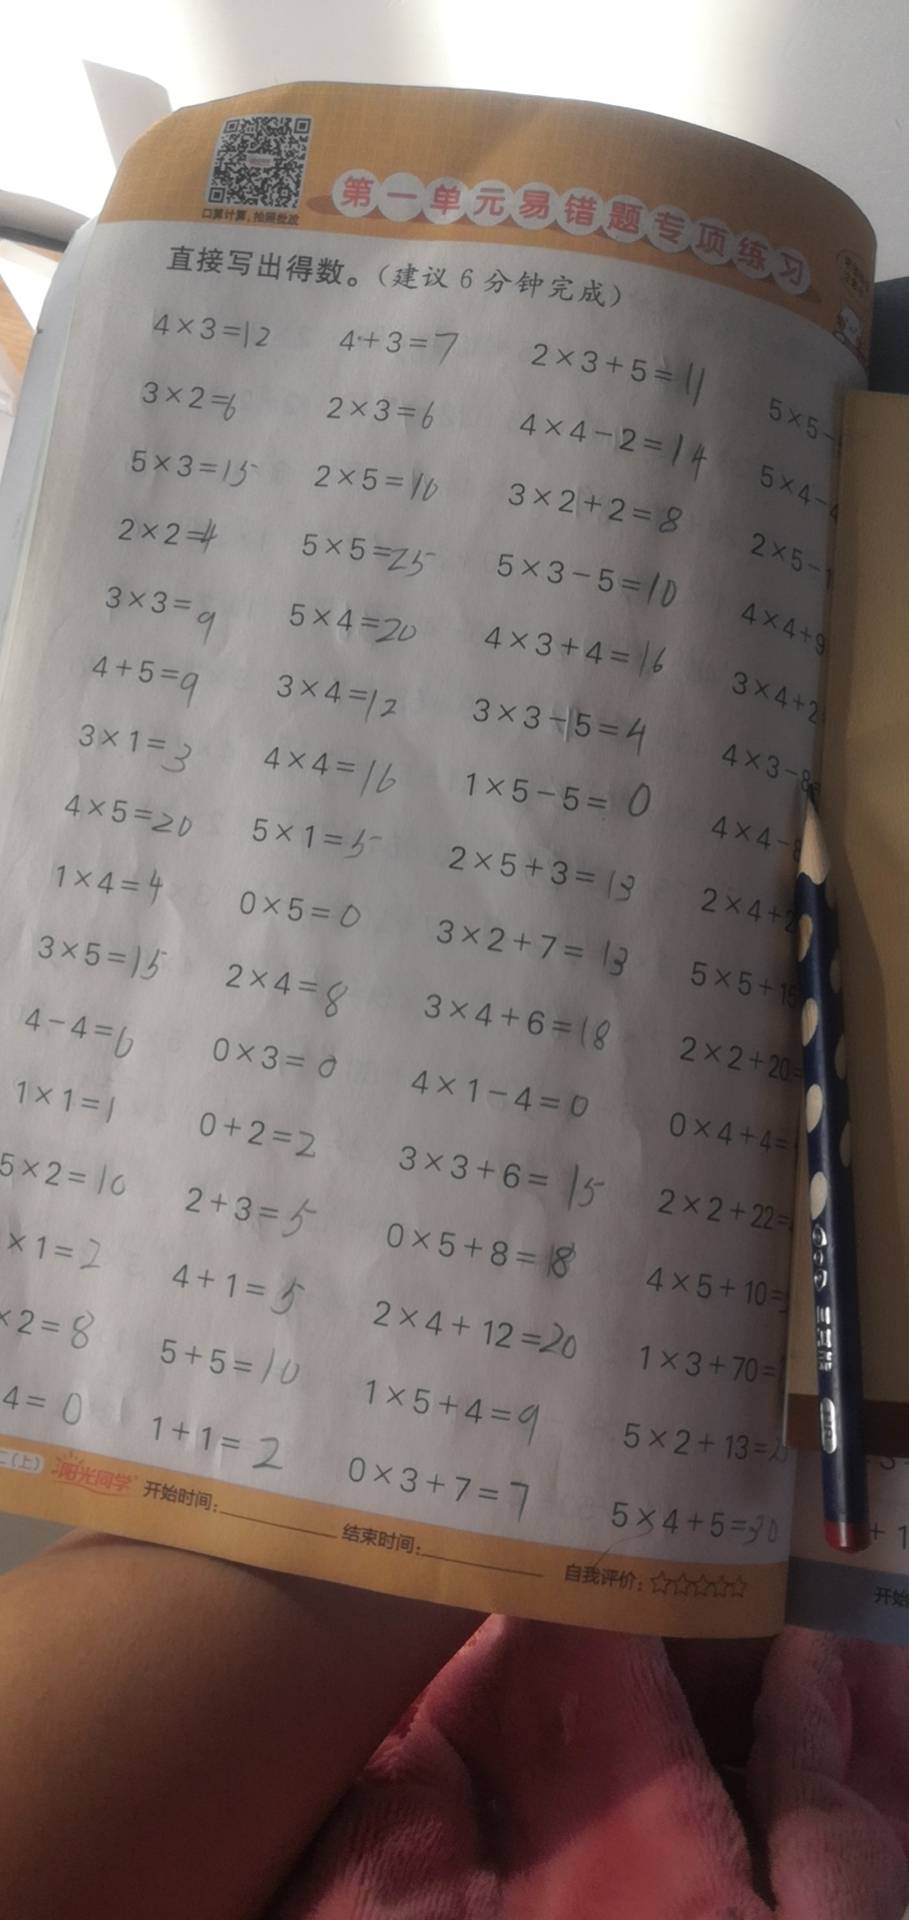 口算计算,拍照批改
第一单元易错题专项练习
直接写出得数。(建议6分钟完成)
4×3=12 4+3=7 2×3+5=11 5×5-
3×2=6 2×3=6 4×4-2=14 5×4-4
5×3=15 2×5=10 3×2+2=8 2×5-1
2×2=4 5×5=25 5×3-5=10 4×4+9
3×3=9 5×4=20 4×3+4=16 3×4+2
4+5=9 3×4=12 3×3-5=4 4×3-8
3×1=3 4×4=16 1×5-5=0 4×4-8
4×5=20 5×1=5 2×5+3=13 2×4+2
1×4=4 0×5=0 3×2+7=13 5×5+15
3×5=15 2×4=8 3×4+6=18 2×2+20=
4-4=6 0×3=0 4×1-4=0 0×4+4=
1×1=1 0+2=2 3×3+6=15 2×2+22=
5×2=10 2+3=5 0×5+8=8 4×5+10=
×1=2 4+1=5 2×4+12=20 1×3+70=
×2=8 5+5=10 1×5+4=9 5×2+13=
4=0 1+1=2 0×3+7=7 5×4+5=30
二(上) 阳光同学 开始时间: 结束时间: 自我评价:☆☆☆☆☆
+1
开始